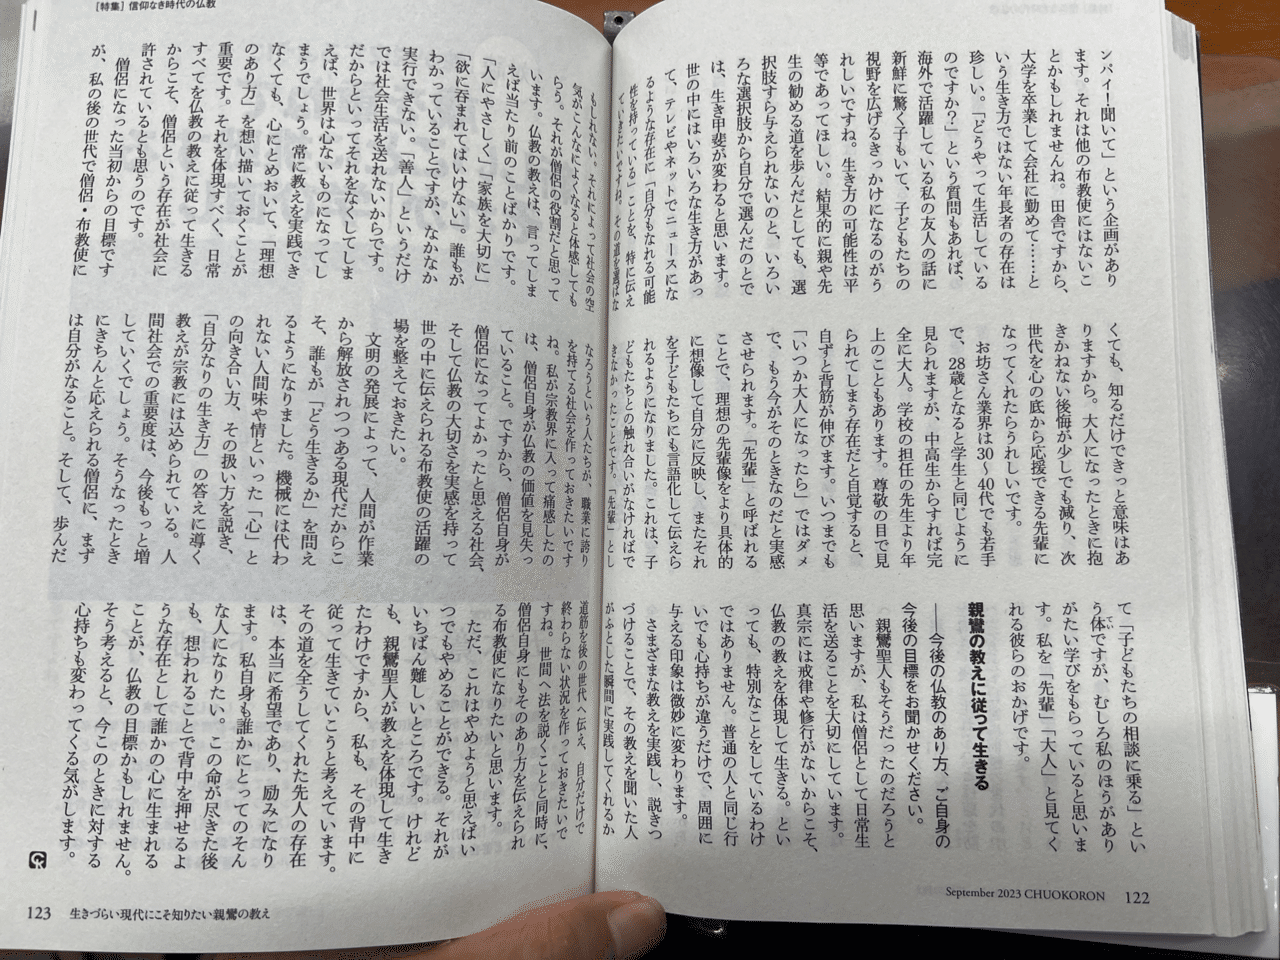 ンパイー聞いて」という企画があり
ます。それは他の布教使にはないこ
とかもしれませんね。田舎ですから、
大学を卒業して会社に勤めて……と
いう生き方ではない年長者の存在は
珍しい。「どうやって生活している
のですか？」という質問もあれば、
海外で活躍している私の友人の話に
新鮮に驚く子もいて、子どもたちの
視野を広げるきっかけになるのがう
れしいですね。生き方の可能性は平
等であってほしい。結果的に親や先
生の勧める道を歩んだとしても、選
択肢すら与えられないのと、いろい
ろな選択肢から自分で選んだのとで
は、生き甲斐が変わると思います。
世の中にはいろいろな生き方があっ
て、テレビやネットでニュースにな
るような存在に「自分もなれる可能
性を持っている」ことを、特に伝え
ていきたいですね。その道を選ばな
くても、知るだけできっと意味はあ
りますから。大人になったときに抱
きかねない後悔が少しでも減り、次
世代を心の底から応援できる先輩に
なってくれたらうれしいです。
お坊さん業界は30〜40代でも若手
で、28歳となると学生と同じように
見られますが、中高生からすれば完
全に大人。学校の担任の先生より年
上のこともあります。尊敬の目で見
られてしまう存在だと自覚すると、
自ずと背筋が伸びます。いつまでも
「いつか大人になったら」ではダメ
で、もう今がそのときなのだと実感
させられます。「先輩」と呼ばれる
ことで、理想の先輩像をより具体的
に想像して自分に反映し、またそれ
を子どもたちにも言語化して伝えら
れるようになりました。これは、子
どもたちとの触れ合いがなければで
きなかったことです。「先輩」とし
て「子どもたちの相談に乗る」とい
う体ですが、むしろ私のほうがあり
てい
がたい学びをもらっていると思いま
す。私を「先輩」「大人」と見てく
れる彼らのおかげです。
親鸞の教えに従って生きる
──今後の仏教のあり方、ご自身の
今後の目標をお聞かせください。
親鸞聖人もそうだったのだろうと
思いますが、私は僧侶として日常生
活を送ることを大切にしています。
真宗には戒律や修行がないからこそ、
仏教の教えを体現して生きる。とい
っても、特別なことをしているわけ
ではありません。普通の人と同じ行
いでも心持ちが違うだけで、周囲に
与える印象は微妙に変わります。
さまざまな教えを実践し、説きつ
づけることで、その教えを聞いた人
がふとした瞬間に実践してくれるか
September 2023 CHUOKORON 122
［特集］信仰なき時代の仏教
もしれない。それによって社会の空
気がこんなによくなると体感しても
らう。それが僧侶の役割だと思って
います。仏教の教えは、言ってしま
えば当たり前のことばかりです。
「人にやさしく」「家族を大切に」
「欲に呑まれてはいけない」。誰もが
わかっていることですが、なかなか
実行できない。「善人」というだけ
では社会生活を送れないからです。
だからといってそれをなくしてしま
えば、世界は心ないものになってし
まうでしょう。常に教えを実践でき
なくても、心にとめおいて、「理想
のあり方」を想い描いておくことが
重要です。それを体現すべく、日常
すべてを仏教の教えに従って生きる
からこそ、僧侶という存在が社会に
許されているとも思うのです。
僧侶になった当初からの目標です
が、私の後の世代で僧侶・布教使に
なろうという人たちが、職業に誇り
を持てる社会を作っておきたいです
ね。私が宗教界に入って痛感したの
は、僧侶自身が仏教の価値を見失っ
ていること。ですから、僧侶自身が
僧侶になってよかったと思える社会、
そして仏教の大切さを実感を持って
世の中に伝えられる布教使の活躍の
場を整えておきたい。
文明の発展によって、人間が作業
から解放されつつある現代だからこ
そ、誰もが「どう生きるか」を問え
るようになりました。機械には代わ
れない人間味や情といった「心」と
の向き合い方、その扱い方を説き、
「自分なりの生き方」の答えに導く
教えが宗教には込められている。人
間社会での重要度は、今後もっと増
していくでしょう。そうなったとき
にきちんと応えられる僧侶に、まず
は自分がなること。そして、歩んだ
道筋を後の世代へ伝え、自分だけで
終わらない状況を作っておきたいで
すね。世間へ法を説くことと同時に、
僧侶自身にもそのあり方を伝えられ
る布教使になりたいと思います。
ただ、これはやめようと思えばい
つでもやめることができる。それが
いちばん難しいところです。けれど
も、親鸞聖人が教えを体現して生き
たわけですから、私も、その背中に
従って生きていこうと考えています。
その道を全うしてくれた先人の存在
は、本当に希望であり、励みになり
ます。私自身も誰かにとってのそん
な人になりたい。この命が尽きた後
も、想われることで背中を押せるよ
うな存在として誰かの心に生まれる
ことが、仏教の目標かもしれません。
そう考えると、今このときに対する
心持ちも変わってくる気がします。
123 生きづらい現代にこそ知りたい親鸞の教え